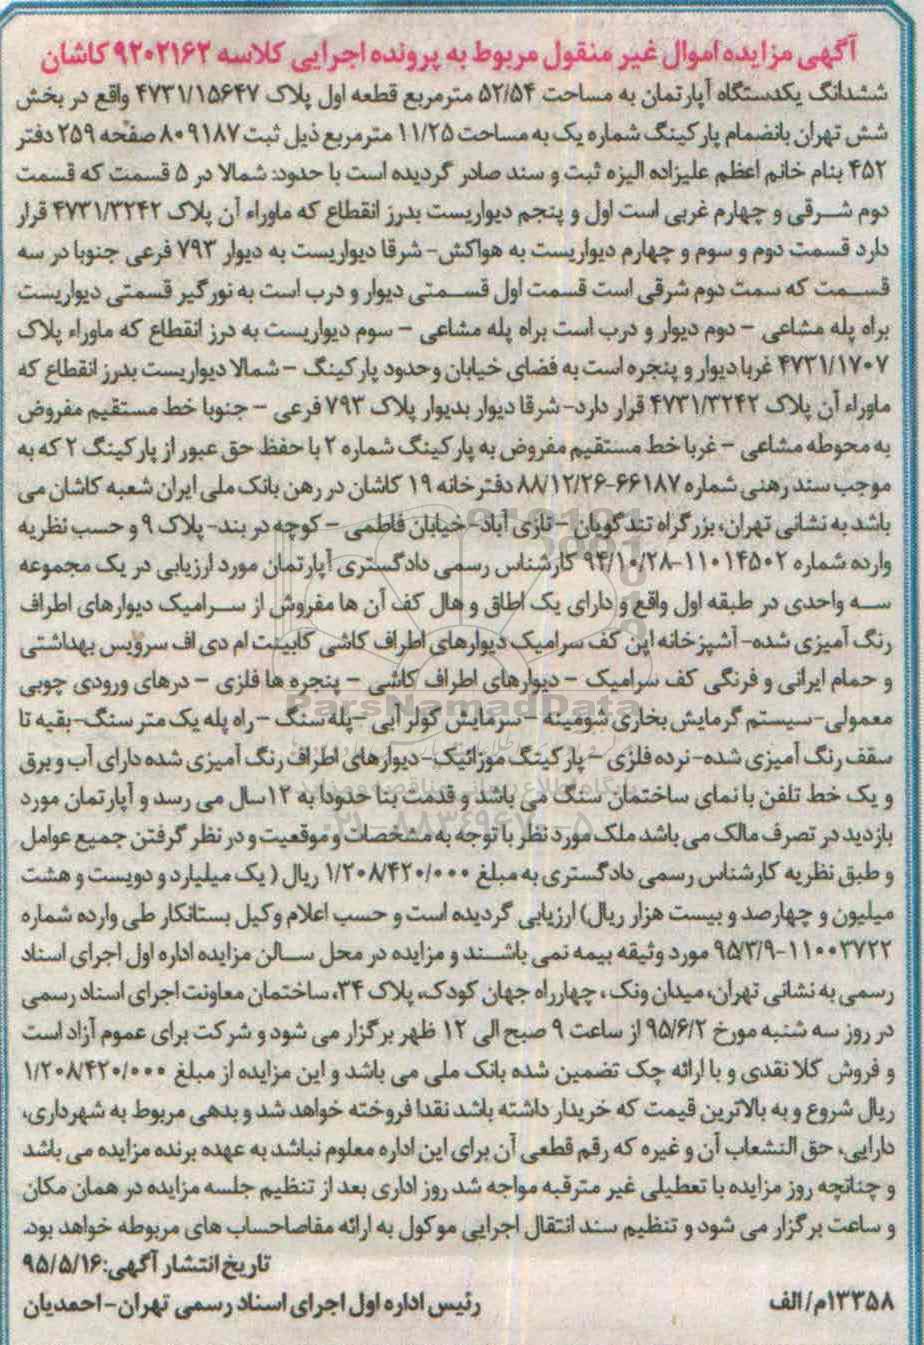 آگهی مزایده اموال غیر منقول مربوط به پرونده اجرایی کلاسه ۹۲۰۲۱۶۲ کاشان
ششدانگ یکدستگاه آپارتمان به مساحت ۵۲/۵۴ مترمربع قطعه اول پلاک ۴۷۳۱/۱۵۶۴۷ واقع در بخش
شش تهران بانضمام پارکینگ شماره یک به مساحت ۱۱/۲۵ مترمربع ذیل ثبت ۸۰۹۱۸۷ صفحه ۲۵۹ دفتر
۴۵۲ بنام خانم اعظم علیزاده الیزه ثبت و سند صادر گردیده است با حدود: شمالا در ۵ قسمت که قسمت
دوم شرقی و چهارم غربی است اول و پنجم دیواریست بدرز انقطاع که ماوراء آن پلاک ۴۷۳۱/۳۲۴۲ قرار
دارد قسمت دوم و سوم و چهارم دیواریست به هواکش- شرقا دیواریست به دیوار ۷۹۳ فرعی جنوبا در سه
قسمت که سمت دوم شرقی است قسمت اول قسمتی دیوار و درب است به نورگیر قسمتی دیواریست
براه پله مشاعی – دوم دیوار و درب است براه پله مشاعی – سوم دیواریست به درز انقطاع که ماوراء پلاک
۴۷۳۱/۱۷۰۷ غربا دیوار و پنجره است به فضای خیابان وحدود پارکینگ – شمالا دیواریست بدرز انقطاع که
ماوراء آن پلاک ۴۷۳۱/۳۲۴۲ قرار دارد- شرقا دیوار بدیوار پلاک ۷۹۳ فرعی – جنوبا خط مستقیم مفروض
به محوطه مشاعی – غربا خط مستقیم مفروض به پارکینگ شماره ۲ با حفظ حق عبور از پارکینگ ۲ که به
موجب سند رهنی شماره ۶۶۱۸۷-۸۸/۱۲/۲۶ دفترخانه ۱۹ کاشان در رهن بانک ملی ایران شعبه کاشان می
باشد به نشانی تهران، بزرگراه تندگویان – نازی آباد- خیابان فاطمی – کوچه در بند- پلاک ۹ و حسب نظریه
وارده شماره ۱۱۰۱۴۵۰۲-۹۴/۱۰/۲۸ کارشناس رسمی دادگستری آپارتمان مورد ارزیابی در یک مجموعه
سه واحدی در طبقه اول واقع و دارای یک اطاق و هال کف آن ها مفروش از سرامیک دیوارهای اطراف
رنگ آمیزی شده- آشپزخانه اپن کف سرامیک دیوارهای اطراف کاشی کابینت ام دی اف سرویس بهداشتی
و حمام ایرانی و فرنگی کف سرامیک – دیوارهای اطراف کاشی – پنجره ها فلزی – درهای ورودی چوبی
معمولی- سیستم گرمایش بخاری شومینه – سرمایش کولر آبی –پله سنگ – راه پله یک متر سنگ- بقیه تا
سقف رنگ آمیزی شده- نرده فلزی – پارکینگ موزائیک- دیوارهای اطراف رنگ آمیزی شده دارای آب و برق
و یک خط تلفن با نمای ساختمان سنگ می باشد و قدمت بنا حدودا به ۱۲سال می رسد و آپارتمان مورد
بازدید در تصرف مالک می باشد ملک مورد نظر با توجه به مشخصات و موقعیت و در نظر گرفتن جمیع عوامل
و طبق نظریه کارشناس رسمی دادگستری به مبلغ ۱/۲۰۸/۴۲۰/۰۰۰ ریال ( یک میلیارد و دویست و هشت
میلیون و چهارصد و بیست هزار ریال) ارزیابی گردیده است و حسب اعلام وکیل بستانکار طی وارده شماره
۱۱۰۰۳۷۲۲-۹۵/۳/۹ مورد وثیقه بیمه نمی باشند و مزایده در محل سالن مزایده اداره اول اجرای اسناد
رسمی به نشانی تهران، میدان ونک ، چهارراه جهان کودک، پلاک ۳۴، ساختمان معاونت اجرای اسناد رسمی
در روز سه شنبه مورخ ۹۵/۶/۲ از ساعت ۹ صبح الی ۱۲ ظهر برگزار می شود و شرکت برای عموم آزاد است
و فروش کلا نقدی و با ارائه چک تضمین شده بانک ملی می باشد و این مزایده از مبلغ ۱/۲۰۸/۴۲۰/۰۰۰
ریال شروع و به بالاترین قیمت که خریدار داشته باشد نقدا فروخته خواهد شد و بدهی مربوط به شهرداری،
دارایی، حق النشعاب آن و غیره که رقم قطعی آن برای این اداره معلوم نباشد به عهده برنده مزایده می باشد
و چنانچه روز مزایده با تعطیلی غیر مترقبه مواجه شد روز اداری بعد از تنظیم جلسه مزایده در همان مکان
و ساعت برگزار می شود و تنظیم سند انتقال اجرایی موکول به ارائه مفاصاحساب های مربوطه خواهد بود.
تاریخ انتشار آگهی: ۹۵/۵/۱۶
۱۳۳۵۸م/الف رئیس اداره اول اجرای اسناد رسمی تهران- احمدیان
ParsNamadData
۰۲۱-۸۸۳۴۹۶۷۰-۵